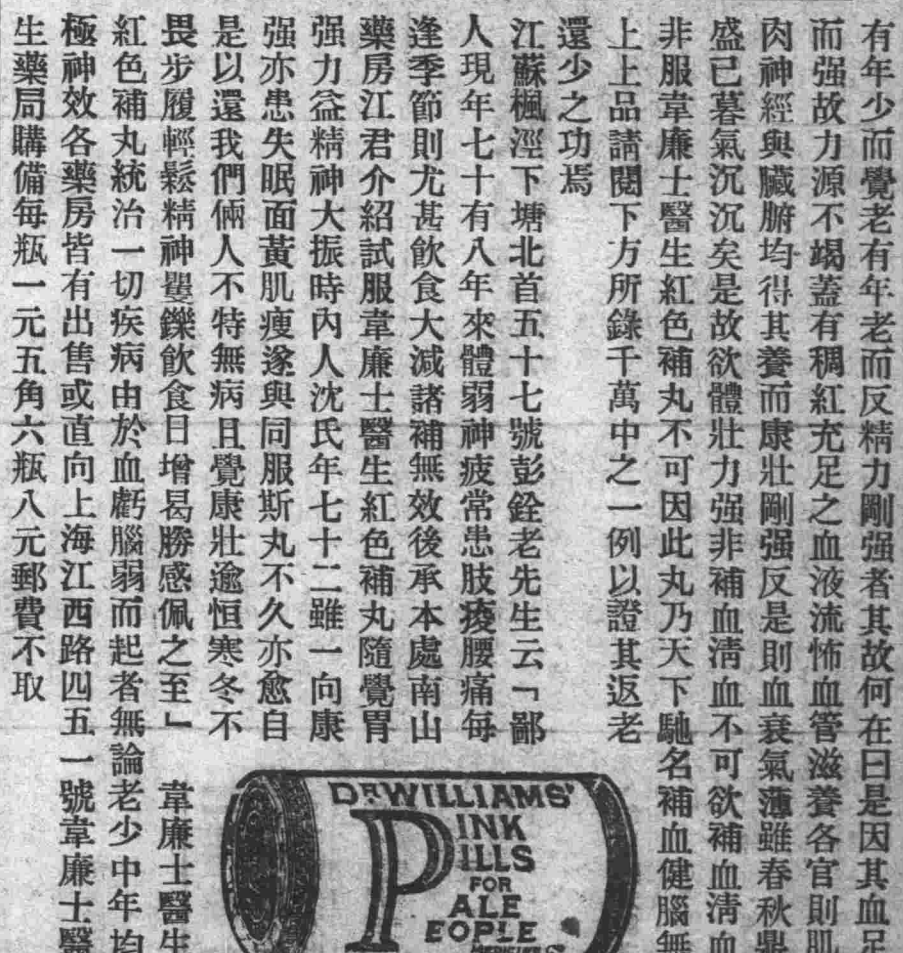 有年少而覺老有年老而反精力剛强者其故何在曰是因其血足
而强故力源不竭蓋有稠紅充足之血液流怖血管滋養各官則肌
肉神經與臟腑均得其養而康壯剛强反是則血衰氣薄雖春秋鼎
盛已暮氣沉沉矣是故欲體壯力强非補血淸血不可欲補血淸血
非服韋廉士醫生紅色補丸不可因此丸乃天下馳名補血健腦無
上上品請閱下方所錄千萬中之一例以證其返老
還少之功焉
江蘇楓涇下塘北首五十七號彭銓老先生云「鄙
人現年七十有八年來體弱神疲常患肢痠腰痛每
逢季節則尤甚飲食大減諸補無效後承本處南山
藥房江君介紹試服韋廉士醫生紅色補丸隨覺胃
强力益精神大振時內人沈氏年七十二雖一向康
强亦患失眠面黃肌瘦遂與同服斯丸不久亦愈自
是以還我們倆人不特無病且覺康壯逾恒寒冬不
畏步履輕鬆精神矍鑠飲食日增曷勝感佩之至」 韋廉士醫生
紅色補丸統治一切疾病由於血虧腦弱而起者無論老少中年均
極神效各藥房皆有出售或直向上海江西路四五一號韋廉士醫
生藥局購備每瓶一元五角六瓶八元郵費不取
DR WILLIAMS'
PINK
PILLS
FOR
PALE
PEOPLE